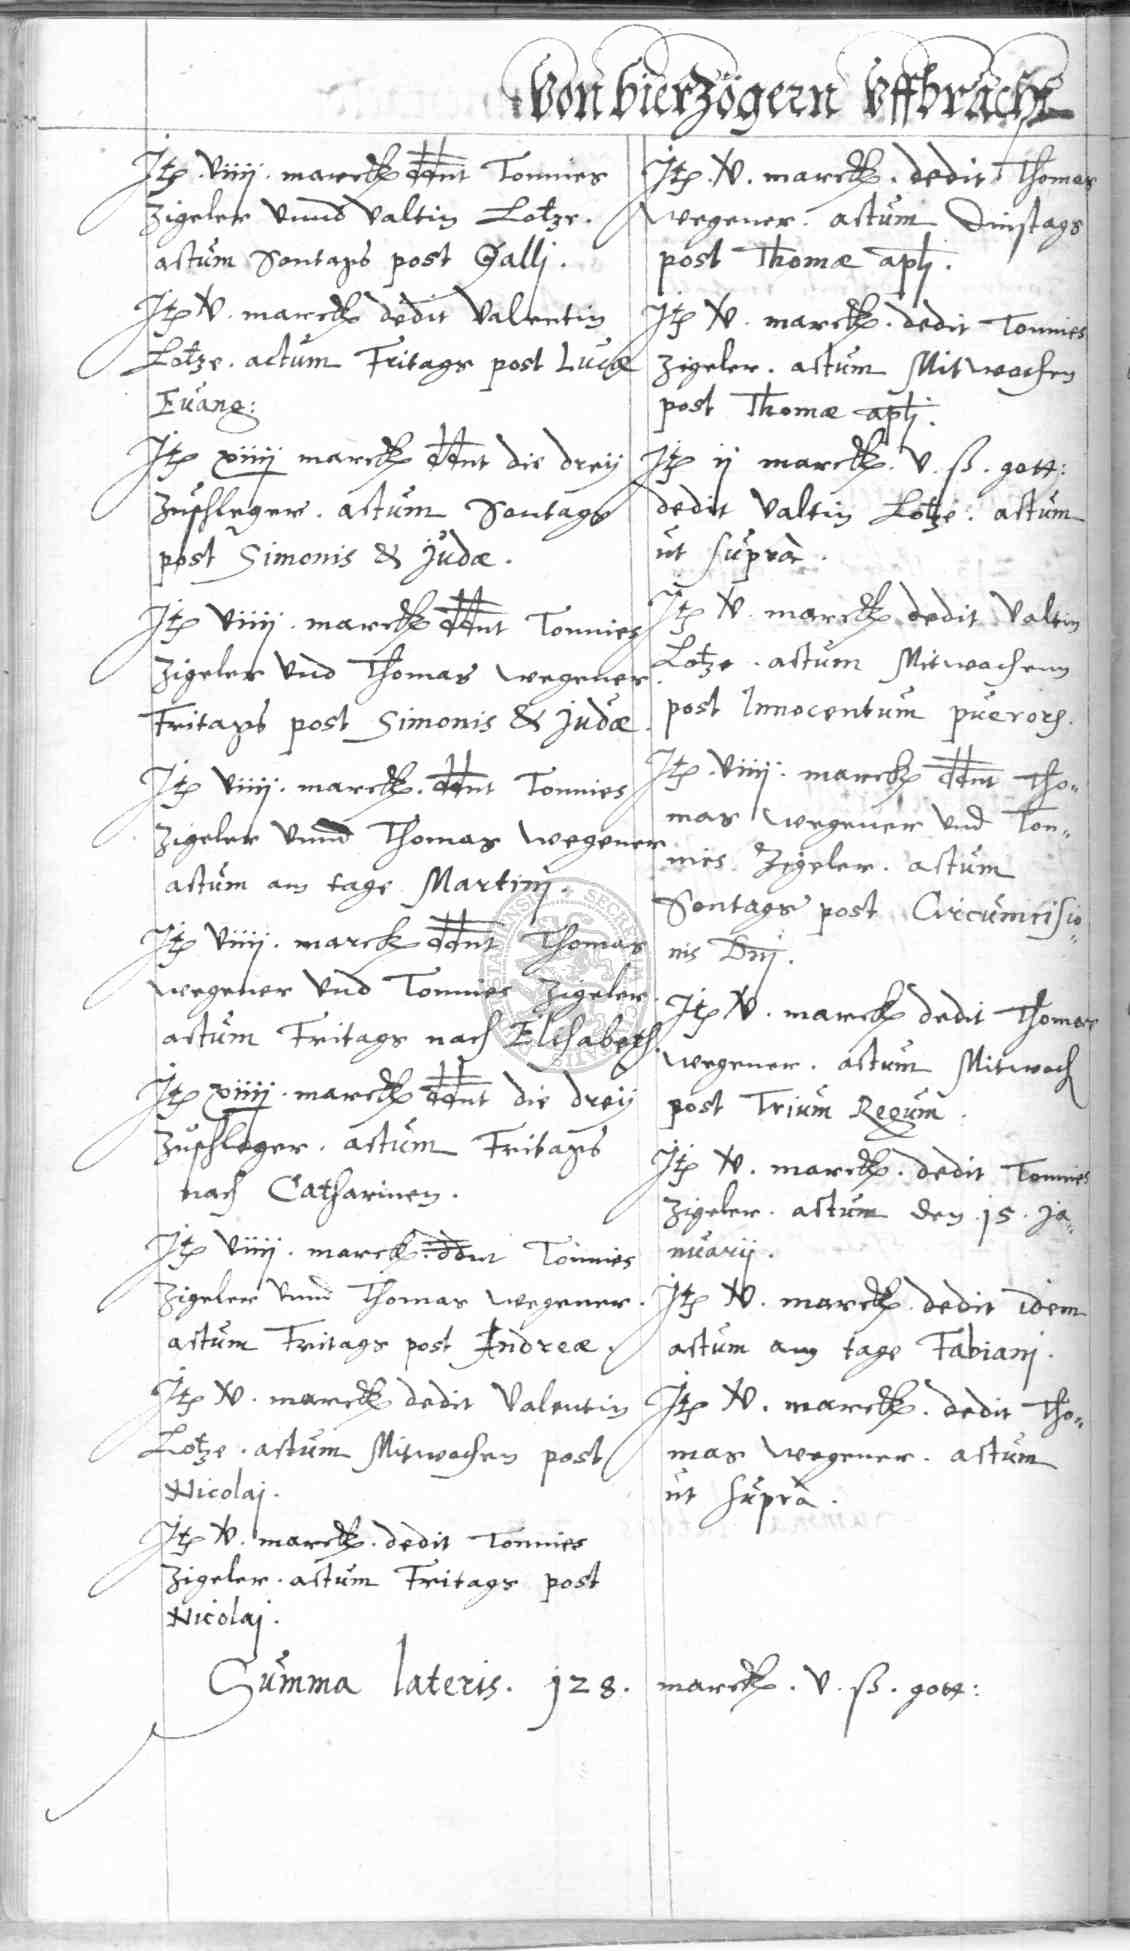 Von bierzögern Uffbracht
Itꝑ . viiij . marckꝭ ddnt Tonnies
Zigeler vnnd Valtin Lotze .
actum Sontags post Galli .
Itꝑ v . marckꝭ dedit Valentin
Lotze . actum Fritags post Lucæ
Euang:
Itꝑ xiiij marckꝭ ddnt die dreÿ
Zuschleger . actum Sontags
post Simonis & Judæ .
Itꝑ viiij . marckꝭ ddnt Tonnies
Zigeler vnd Thomas Wegener
Fritags post Simonis & Judæ .
Itꝑ viiij . marckꝭ . ddnt Tonnies
Zigeler vnnd Thomas Wegener
actum am tage Martinj .
Itꝑ viiij . marck ddnt Thomas
Wegener vnd Tonnies Zigeler .
actum Fritags nach Elisabeth .
Itꝑ xiiij . marckꝭ ddnt die dreÿ
Zuschleger . actum Fritags
nach Catharinen .
Itꝑ viiij . marckꝭ . ddnt Tonnies
Zigeler vnnd Thomas Wegener .
actum Fritags post Andreæ .
Itꝑ v . marckꝭ dedit Valentin
Lotze . actum Mitwochen post
Nicolaj .
Itꝑ v . marckꝭ . dedit Tonnies
Zigeler . actum Fritags post
Nicolaj .
Itꝑ . v . marckꝭ . dedit Thomas
Wegener . actum Dinstags
post Thomæ aplj .
Itꝑ v . marckꝭ . dedit Tonnies
Zigeler . actum Mitwochen
post Thomæ aplj .
Itꝑ ij marckꝭ . v . ß . gott:
dedit Valtin Lotze . actum
ut supra .
Itꝑ v . marckꝭ dedit Valtin
Lotze . actum Mitwochenn
post Innocentum pueroꝝ .
Itꝑ . viiij . marckꝭ ddnt Tho-
mas Wegener vnd Ton-
nies Zigeler . actum
Sontags post Circumcisio-
nis Dnj .
Itꝑ v . marckꝭ dedit Thomas
Wegener . actum Mitwoch
post Trium Regum .
Itꝑ v . marckꝭ . dedit Tonnies
Zigeler . actum den . 15 . Ja-
nuarij .
Itꝑ v . marckꝭ . dedit idem
actum am tage Fabianj .
Itꝑ v . marckꝭ . dedit Tho-
mas Wegener . actum
ut supra .
Summa lateris . 128 . marckꝭ . v . ß . gott: